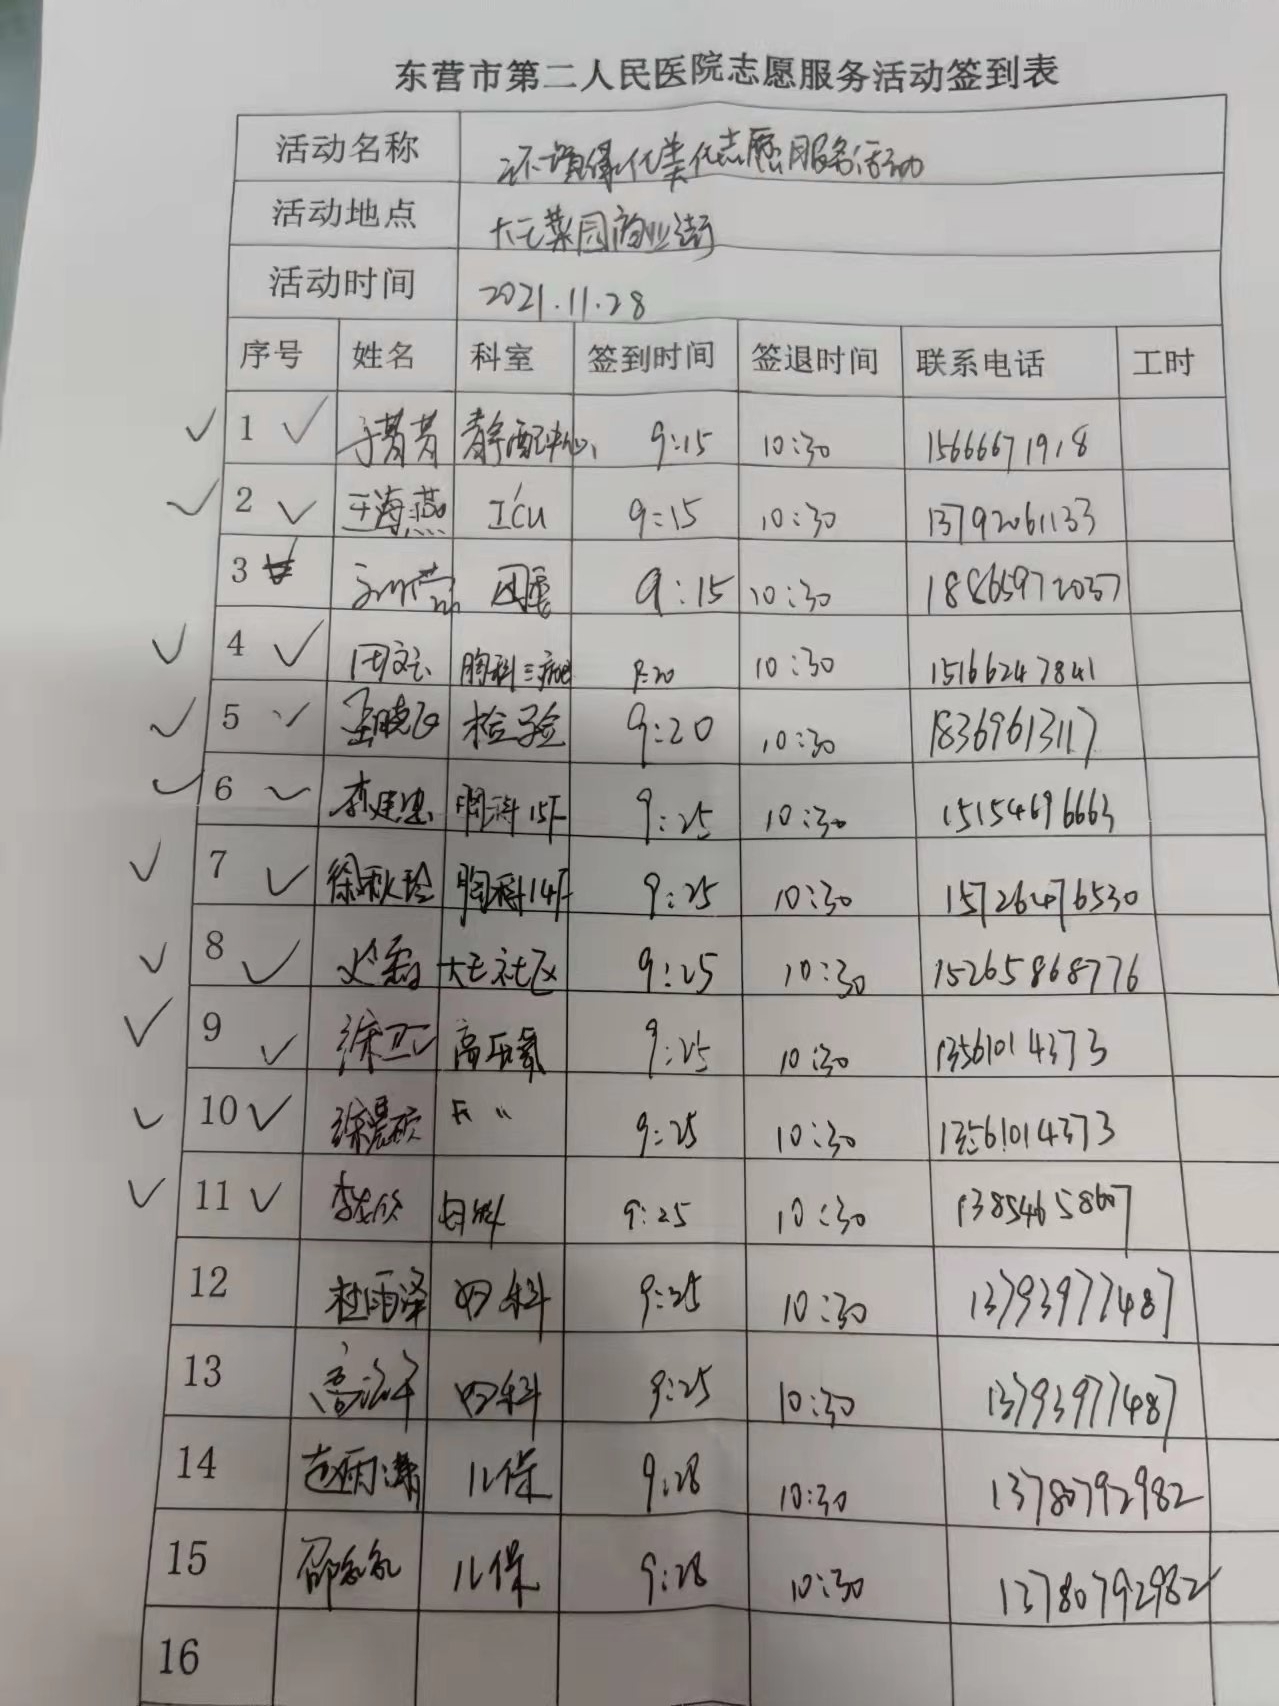 东营市第二人民医院志愿服务活动签到表
活动名称 环境绿化美化志愿服务活动
活动地点 大王菜园商业街
活动时间 2021.11.28
序号 姓名 科室 签到时间 签退时间 联系电话 工时
1 于菁菁 静配中心 9:15 10:30 15666671918
2 王海燕 ICU 9:15 10:30 13792061133
3 9:15 10:30 18865972037
4 胸科三病区 9:20 10:30 15166247841
5 检验 9:20 10:30 18369613117
6 胸科15F 9:25 10:30 15154696663
7 徐秋玲 胸科14F 9:25 10:30 15726476530
8 大王社区 9:25 10:30 15265868776
9 高压氧 9:25 10:30 13561014373
10 〃 9:25 10:30 13561014373
11 9:25 10:30 13854658607
12 杜雨泽 妇科 9:25 10:30 13793977487
13 妇科 9:25 10:30 13793977487
14 儿保 9:28 10:30 13780792982
15 儿保 9:28 10:30 13780792982
16